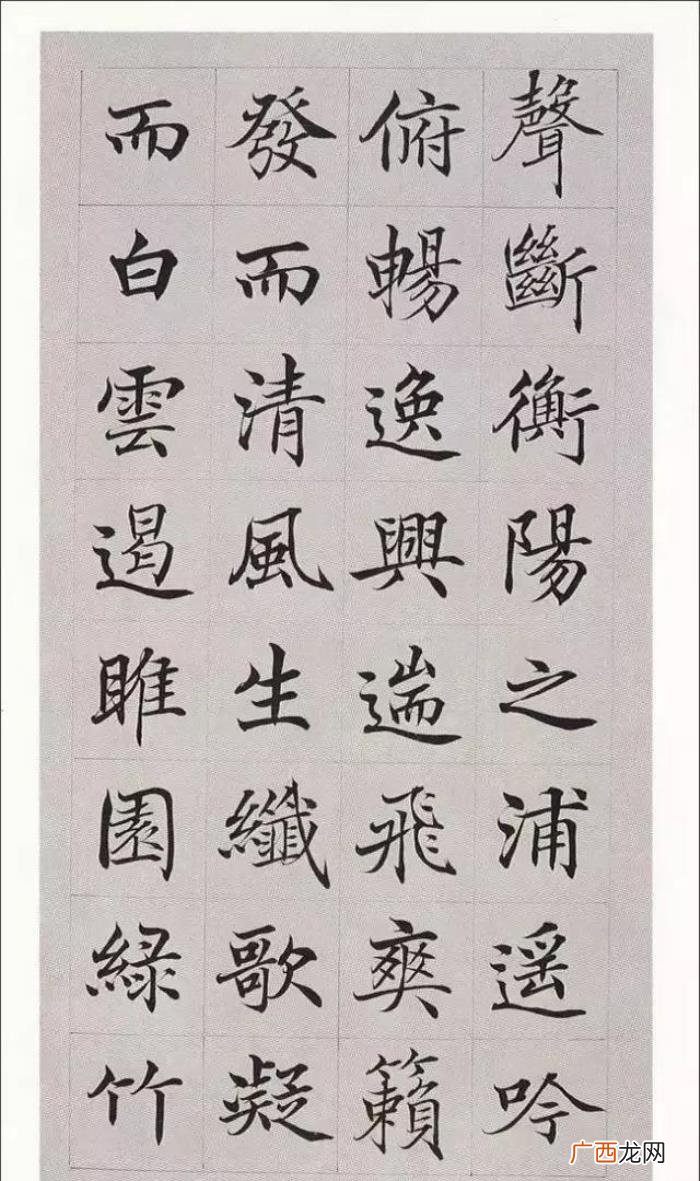 聲斷衡陽之浦遥吟
俯暢逸興遄飛爽籟
發而清風生纖歌凝
而白雲遏睢園緑竹
广西龙网